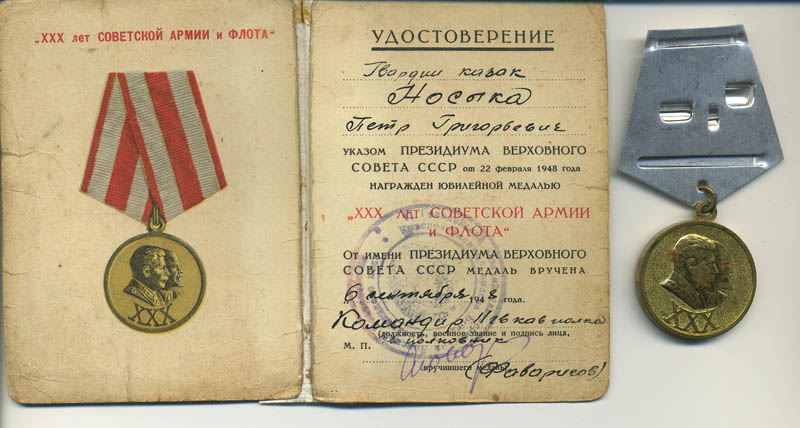 „XXX лет СОВЕТСКОЙ АРМИИ и ФЛОТА“
XXX
УДОСТОВЕРЕНИЕ
Гвардии казак
Носыка
Петр Григорьевич
УКАЗОМ ПРЕЗИДИУМА ВЕРХОВНОГО
СОВЕТА СССР от 22 февраля 1948 года
НАГРАЖДЕН ЮБИЛЕЙНОЙ МЕДАЛЬЮ
„XXX лет СОВЕТСКОЙ АРМИИ
и ФЛОТА“
От имени ПРЕЗИДИУМА ВЕРХОВНОГО
СОВЕТА СССР МЕДАЛЬ ВРУЧЕНА
6 сентября 1948 года.
Командир полка
(должность, военное звание и подпись лица,
М. П. полковник
вручившего медаль)
XXX